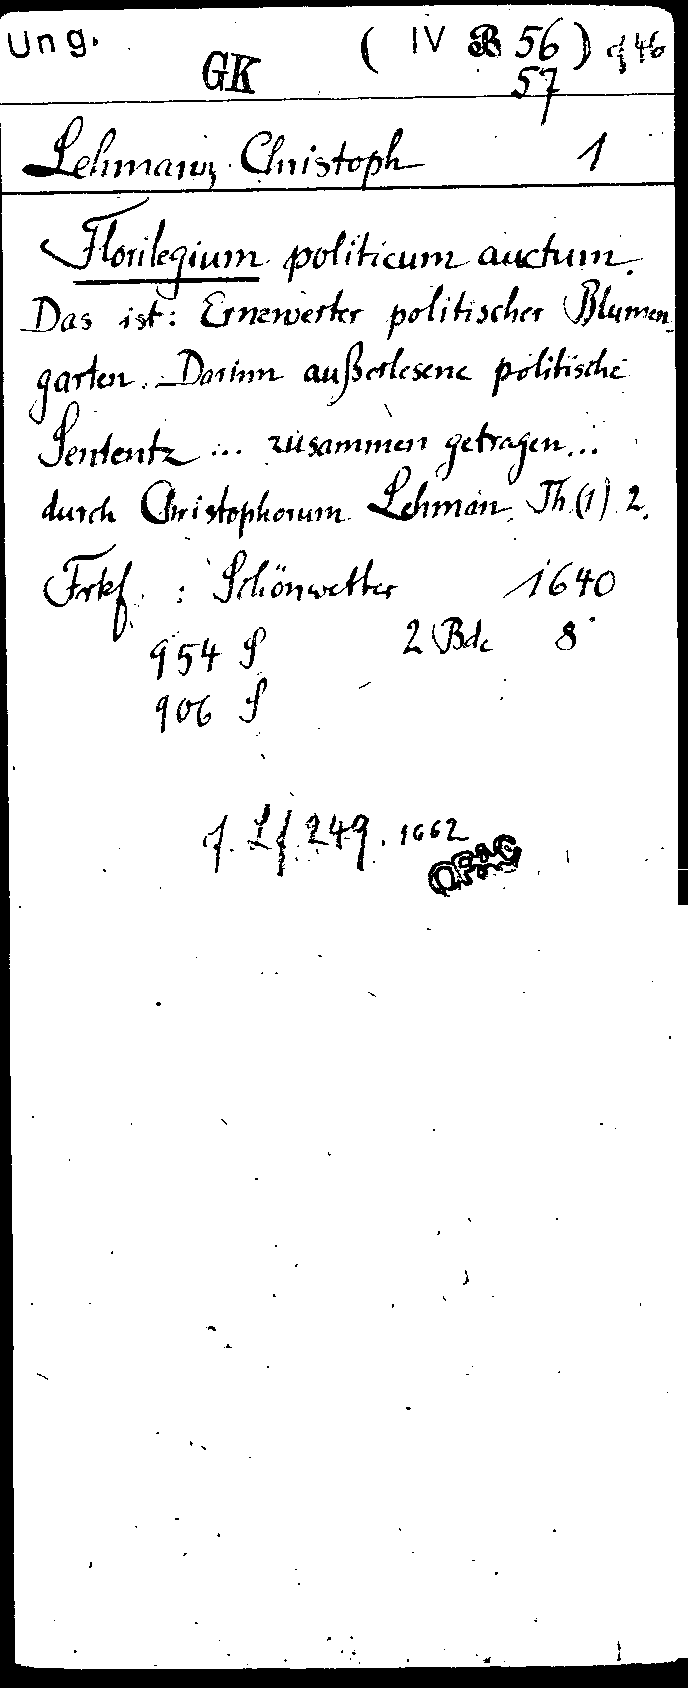 Ung. GK ( IV B 56 ) cf 46
57
Lehmann, Christoph 1
Florilegium politicum auctum.
Das ist: Ernewerter politischer Blumen-
garten. Darinn außerlesene politische
Sententz ... zusammen getragen...
durch Christophorum Lehman. Th. (1) 2.
Frkf. : Schönwetter 1640
954 S 2 Bde 8°
906 S
cf. Lf. 249. 1662
OPAC